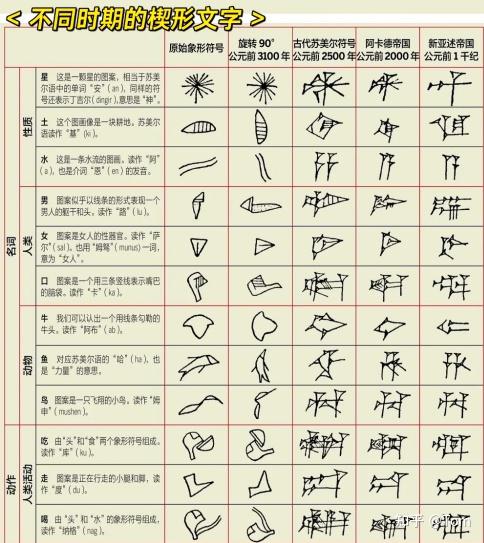 < 不同时期的楔形文字 >
原始象形符号
旋转 90°
公元前 3100 年
古代苏美尔符号
公元前 2500 年
阿卡德帝国
公元前 2000 年
新亚述帝国
公元前 1 千纪
名词
性质
星 这是一颗星的图案，相当于苏美
尔语中的单词“安”（an），同样的符
号还表示丁吉尔（dingir），意思是“神”。
土 这个图像是一块耕地。苏美尔
语读作“基”（ki）。
水 这是一条水流的图画。读作“阿”
（a），也是介词“恩”（en）的发音。
人类
男 图案似乎以线条的形式表现一个
男人的躯干和头。读作“路”（lu）。
女 图案是女人的性器官。读作“萨
尔”（sal）。也用“姆驽”（munus）一词，
意为“女人”。
口 图案是一个用三条竖线表示嘴巴
的脑袋。读作“卡”（ka）。
动物
牛 我们可以认出一个用线条勾勒的
牛头。读作“阿布”（ab）。
鱼 对应苏美尔语的“哈”（ha），也
是“力量”的意思。
鸟 图案是一只飞翔的小鸟。读作“姆
申”（mushen）。
动作
人类活动
吃 由“头”和“食”两个象形符号组成。
读作“库”（ku）。
走 图案是正在行走的小腿和脚，读
作“度”（du）。
喝 由“头”和“水”的象形符号组成，
读作“纳格”（nag）。